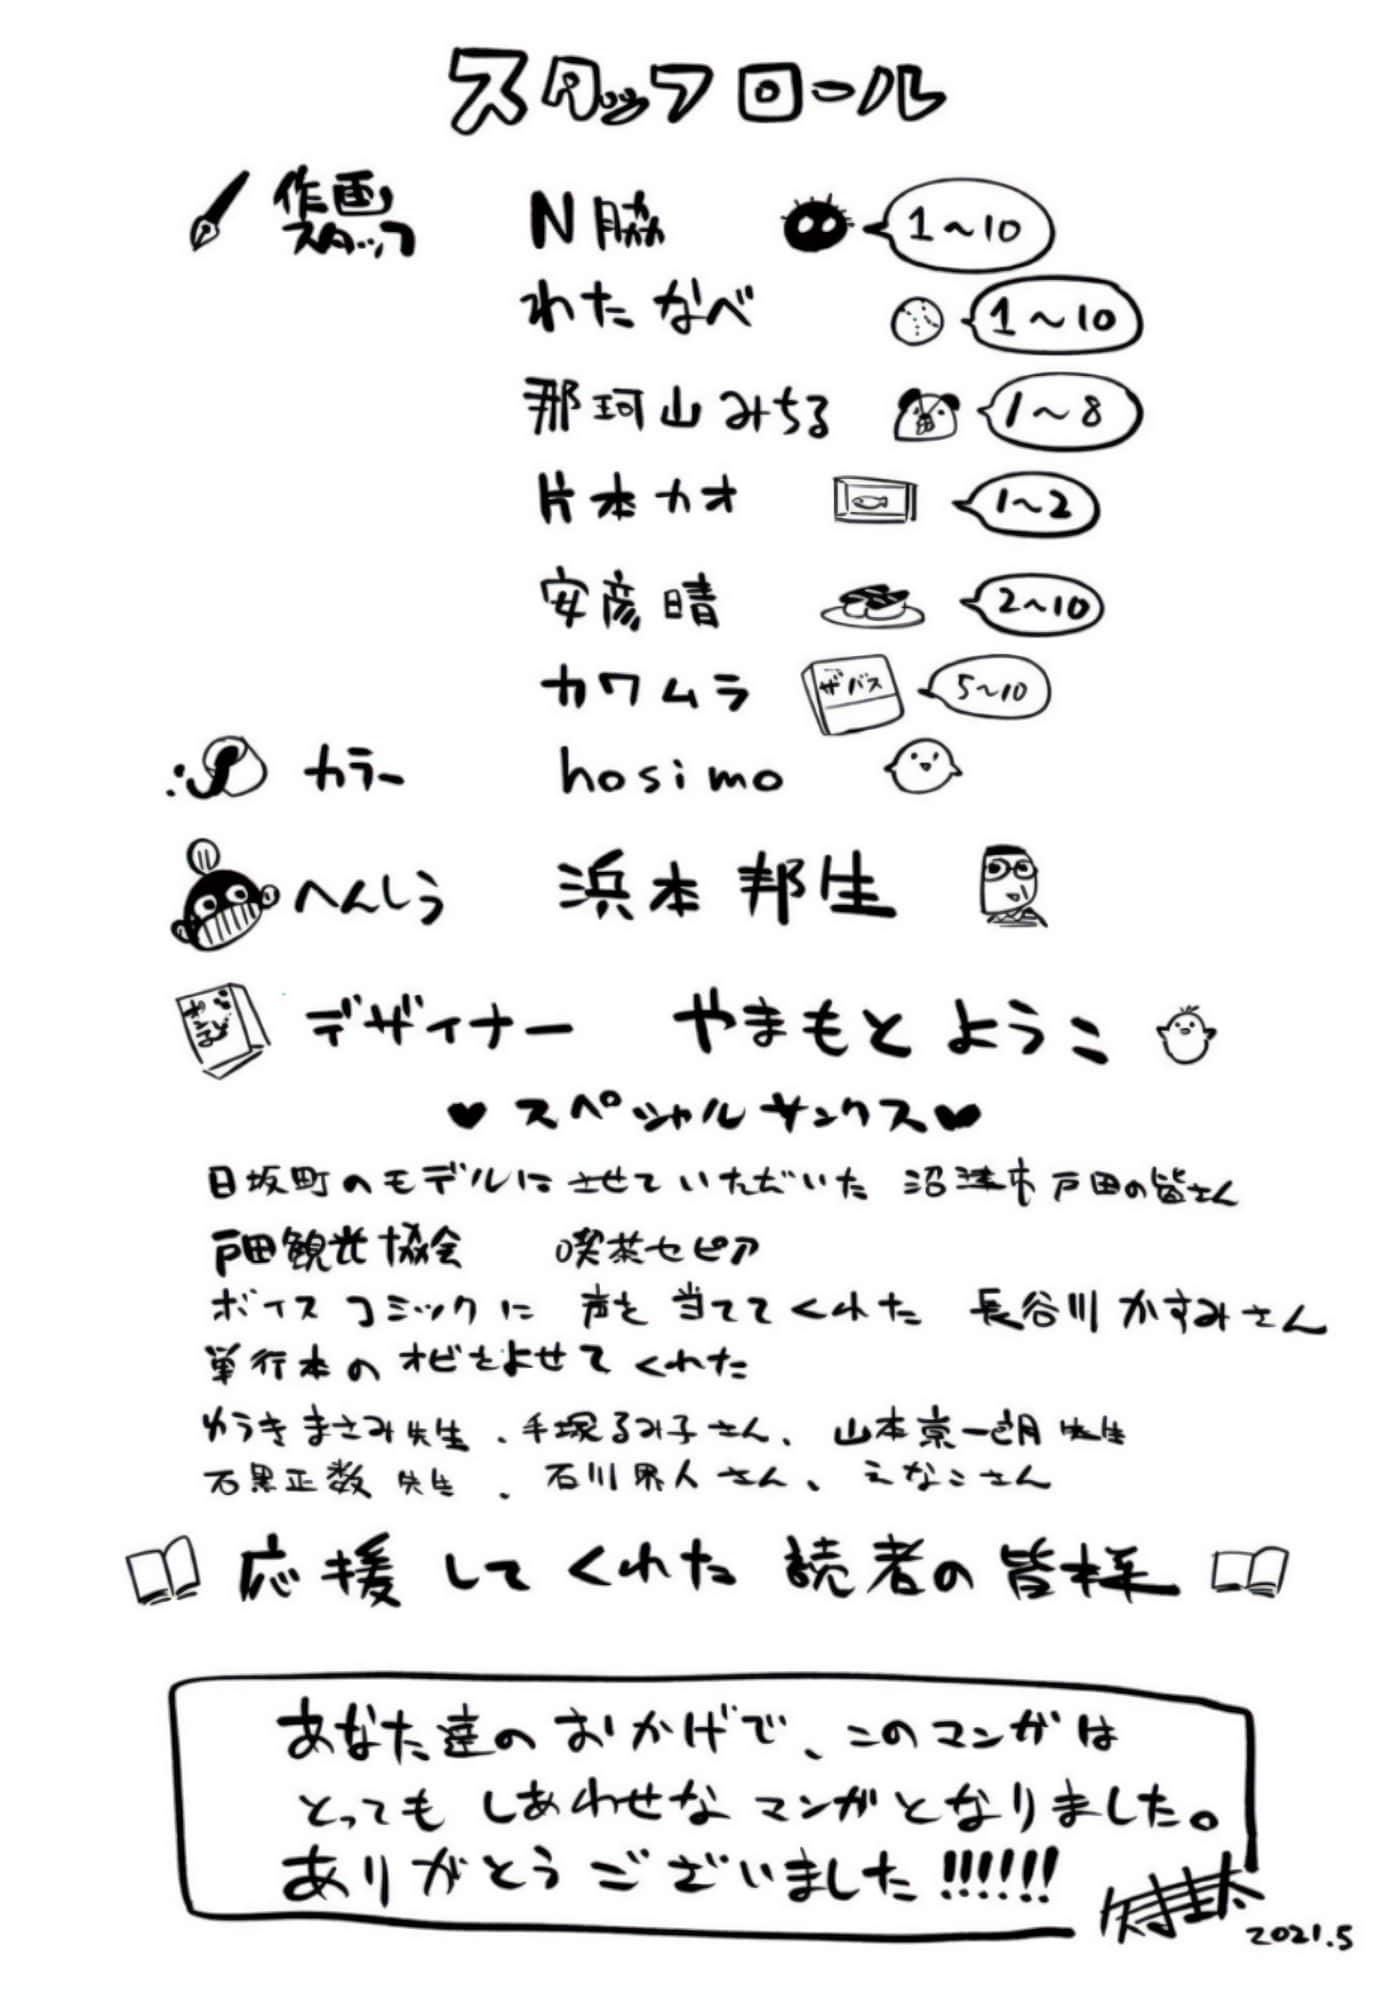 スタッフロール
作画
スタッフ
N脇 1〜10
わたなべ 1〜10
那珂山みちる 1〜8
片本カオ 1〜2
安彦晴 2〜10
カワムラ ザバス 5〜10
カラー hosimo
へんしう 浜本邦生
デザイナー やまもとようこ
♥スペシャルサンクス♥
日坂町のモデルにさせていただいた 沼津市戸田の皆さん
戸田観光協会 喫茶セピア
ボイスコミックに 声を当ててくれた 長谷川かすみさん
単行本のオビをよせてくれた
ゆうきまさみ先生、手塚るみ子さん、山本崇一朗先生
石黒正数先生、石川界人さん、えなこさん
応援してくれた読者の皆様
あなた達のおかげで、このマンガは
とってもしあわせなマンガとなりました。
ありがとうございました!!!!!!
2021.5